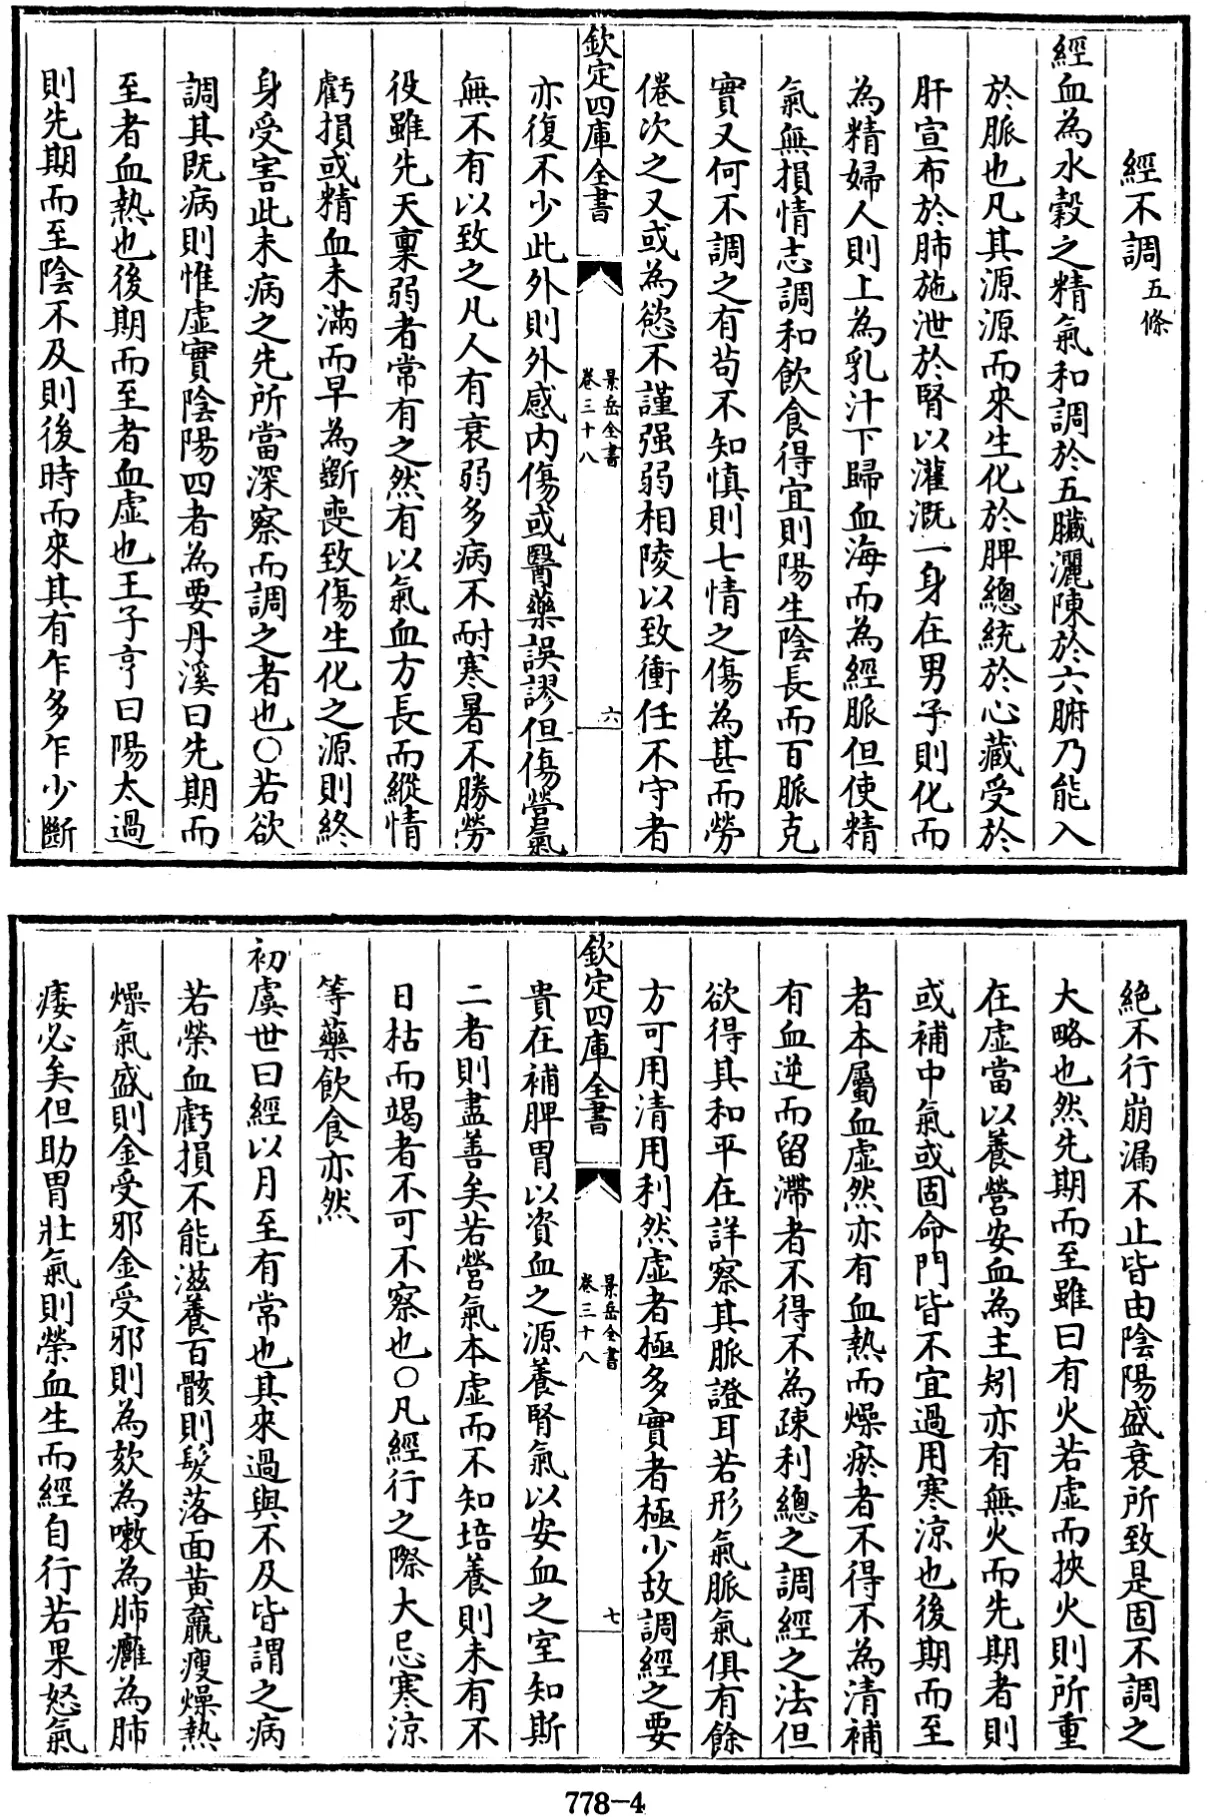 經不調五條
經血為水穀之精氣和調於五臟灑陳於六腑乃能入
於脈也凡其源源而來生化於脾總統於心藏受於
肝宣布於肺施泄於腎以灌溉一身在男子則化而
為精婦人則上為乳汁下歸血海而為經脈但使精
氣無損情志調和飲食得宜則陽生陰長而百脈克
實又何不調之有苟不知慎則七情之傷為甚而勞
倦次之又或為慾不謹强弱相陵以致衝任不守者
欽定四庫全書
景岳全書
卷三十八
六
亦復不少此外則外感内傷或醫藥誤謬但傷營氣
無不有以致之凡人有衰弱多病不耐寒暑不勝勞
役雖先天稟弱者常有之然有以氣血方長而縱情
虧損或精血未滿而早為斲喪致傷生化之源則終
身受害此未病之先所當深察而調之者也○若欲
調其既病則惟虛實陰陽四者為要丹溪曰先期而
至者血熱也後期而至者血虛也王子亨曰陽太過
則先期而至陰不及則後時而來其有乍多乍少斷
絶不行崩漏不止皆由陰陽盛衰所致是固不調之
大略也然先期而至雖曰有火若虛而挾火則所重
在虛當以養營安血為主矧亦有無火而先期者則
或補中氣或固命門皆不宜過用寒涼也後期而至
者本屬血虛然亦有血熱而燥瘀者不得不為清補
有血逆而留滯者不得不為疎利總之調經之法但
欲得其和平在詳察其脈證耳若形氣脈氣俱有餘
方可用清用利然虛者極多實者極少故調經之要
欽定四庫全書
景岳全書
卷三十八
七
貴在補脾胃以資血之源養腎氣以安血之室知斯
二者則盡善矣若營氣本虛而不知培養則未有不
日枯而竭者不可不察也○凡經行之際大忌寒涼
等藥飲食亦然
初虞世曰經以月至有常也其來過與不及皆謂之病
若榮血虧損不能滋養百骸則髮落面黄羸瘦燥熱
燥氣盛則金受邪金受邪則為欬為嗽為肺癰為肺
痿必矣但助胃壯氣則榮血生而經自行若果怒氣
778—4